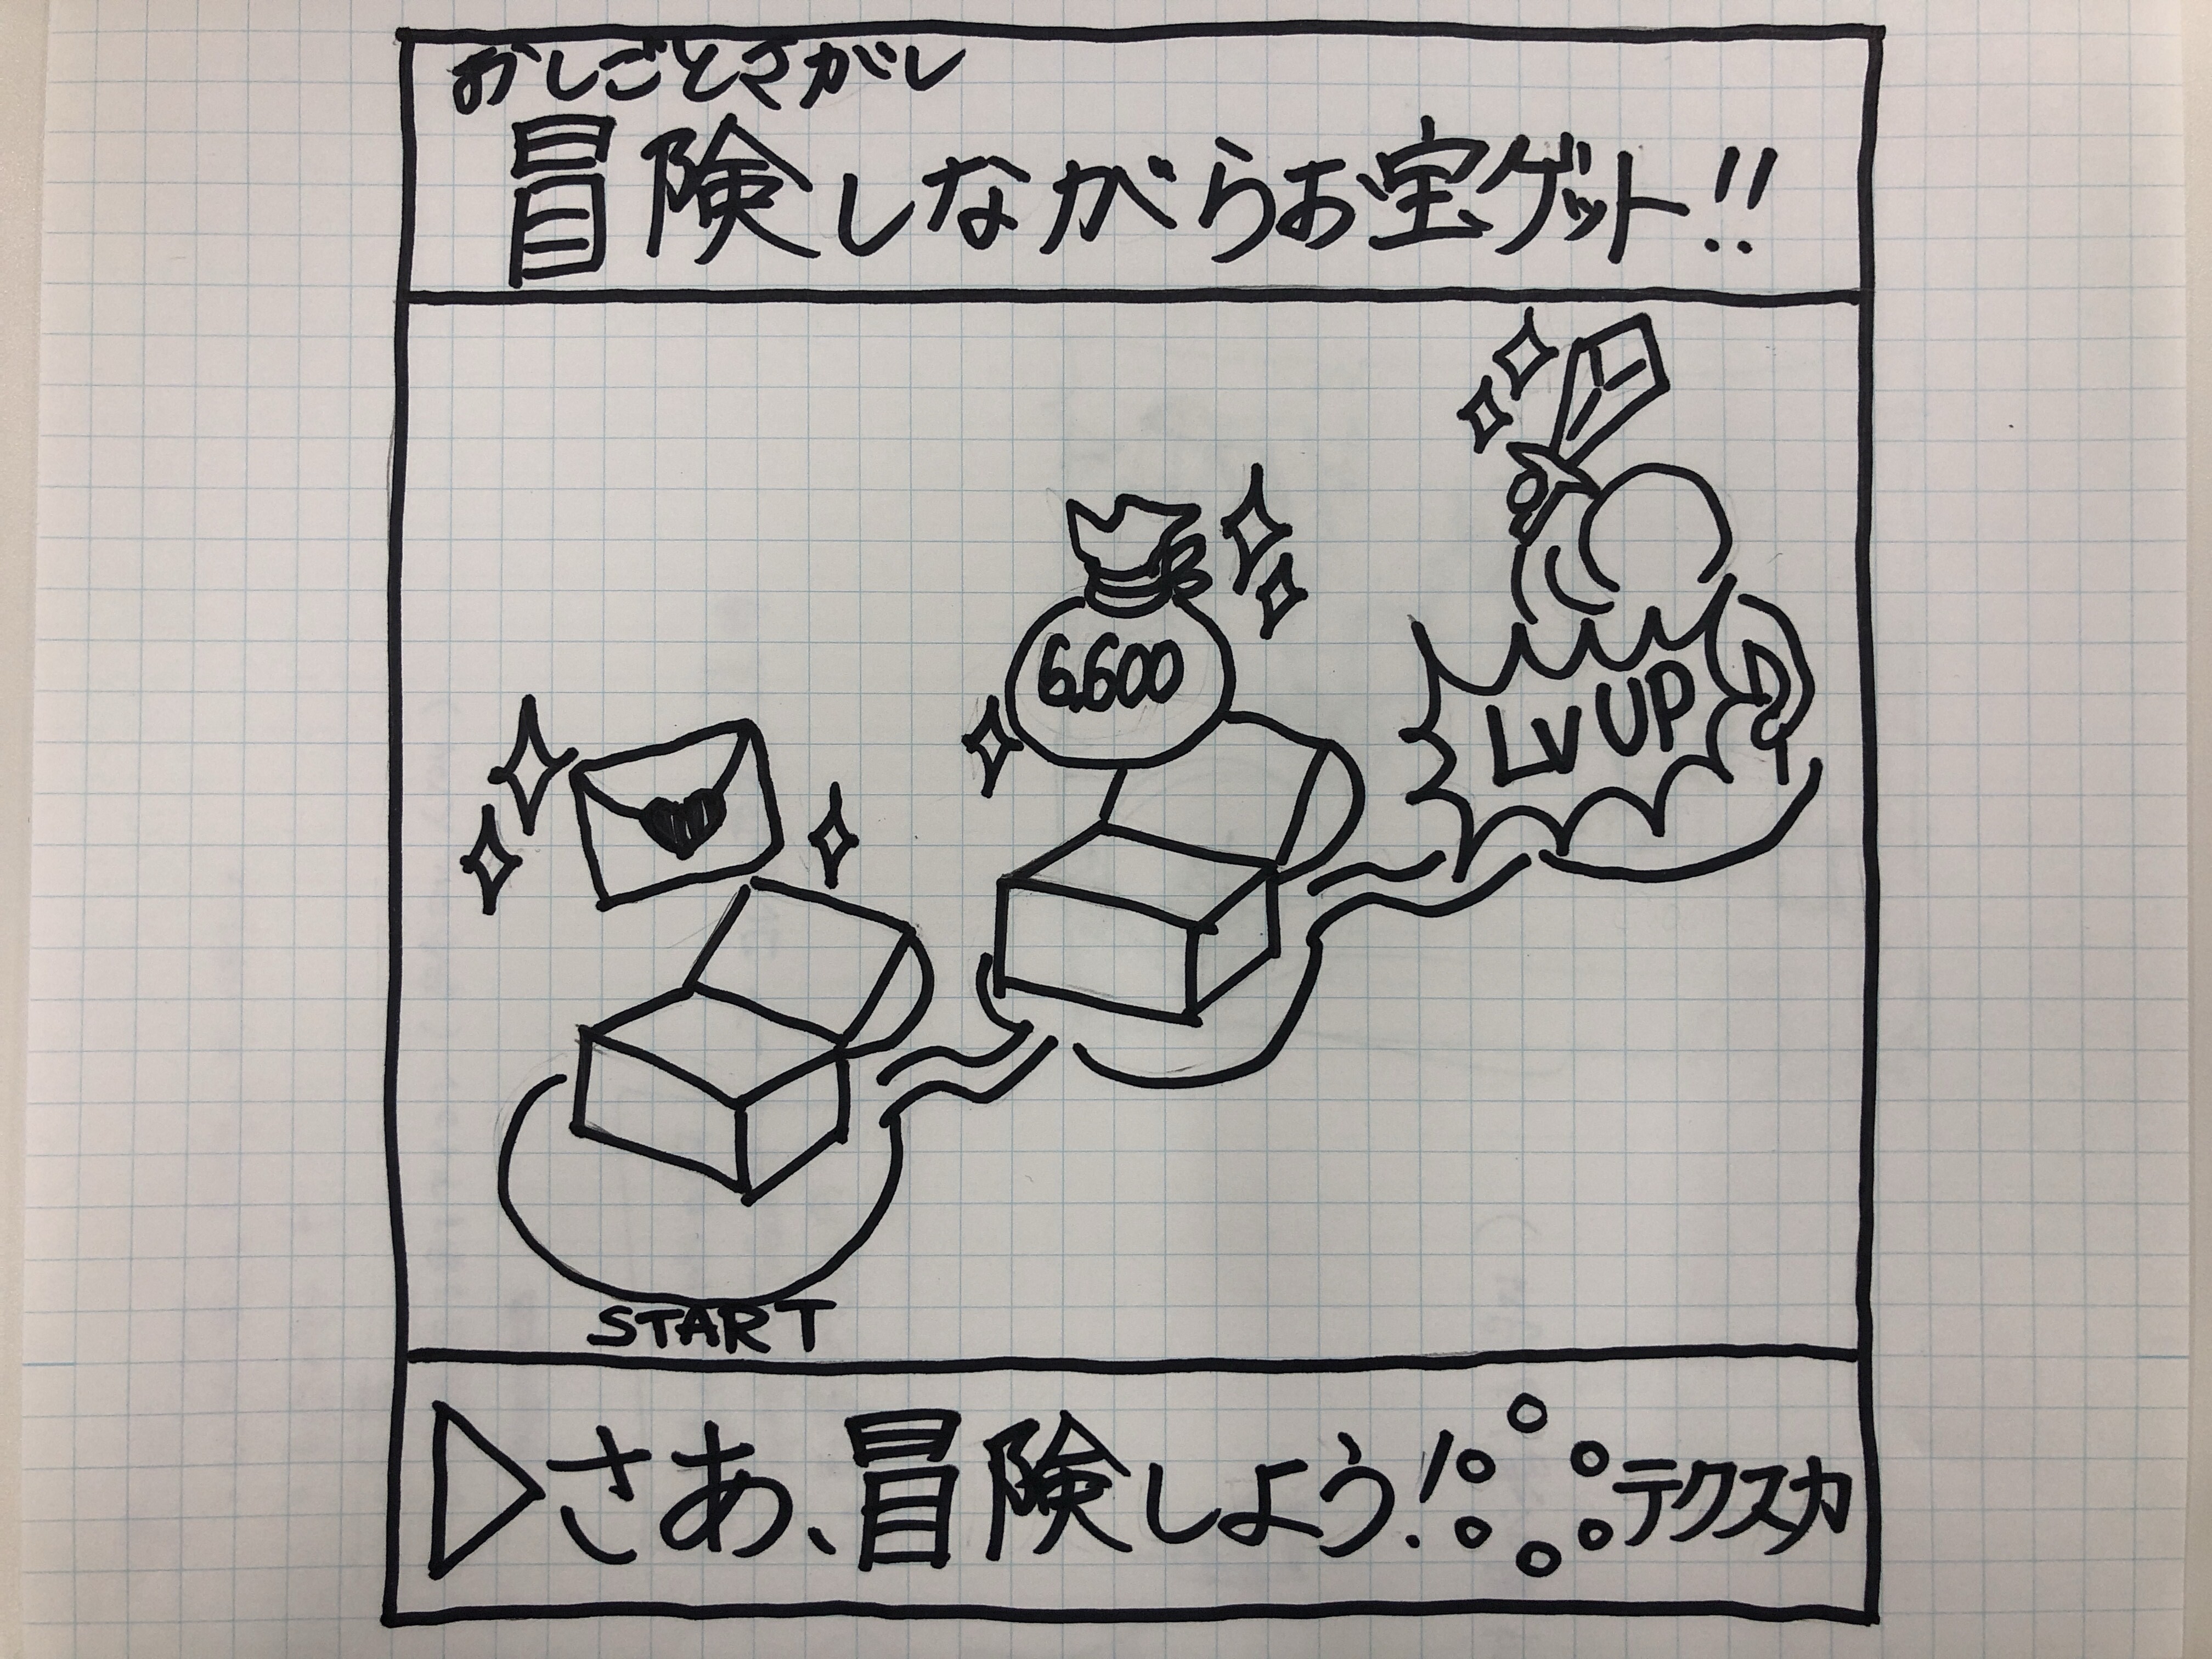 おしごとさがし
冒険しながらお宝ゲット!!
6,600
LV UP
START
▷さあ、冒険しよう! テクスカ